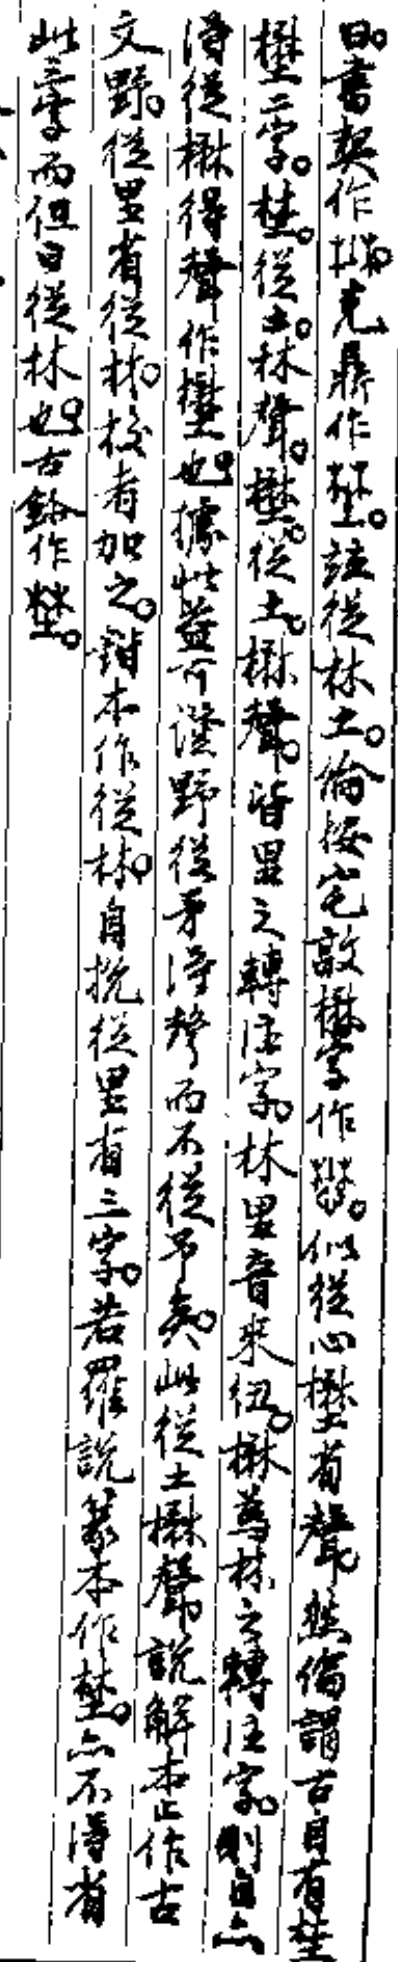 曰。書契作𡐨。克鼎作埜。竝從林土。倫按宅𣪘楙字作𢡟。似從心壄省聲。然倫謂古自有埜
壄二字。埜。從土。林聲。壄。從土。楙聲。皆里之轉注字。林里音來紐。楙爲林之轉注字。則自亦
得從楙得聲作壄也。據此益可證野從矛得聲而不從予矣。此從土楙聲。說解本止作古
文野。從里省從林。校者加之。鍇本作從林。自挩從里省三字。若羅說篆本作埜。亦不得省
此三字而但曰從林也。古鉩作埜。